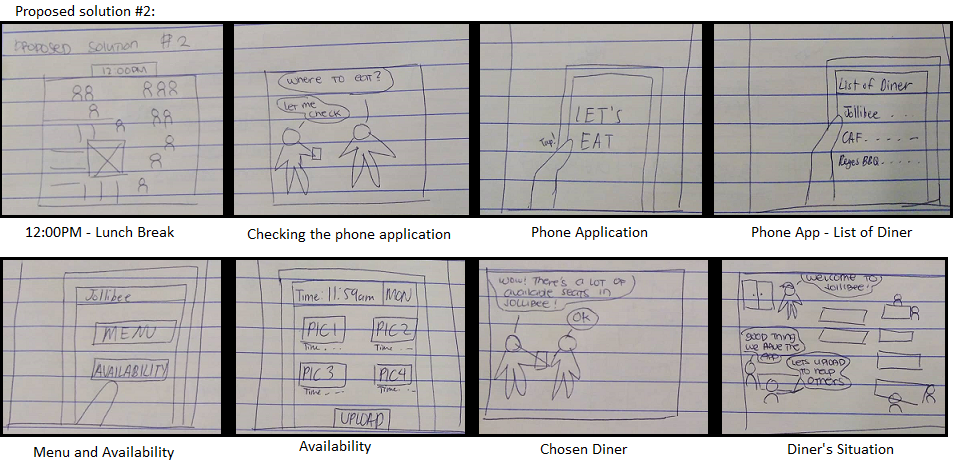 Proposed solution #2:
PROPOSED SOLUTION #2
12:00PM
12:00PM - Lunch Break
WHERE TO EAT?
LET ME
CHECK
Checking the phone application
LET'S
EAT
Tap!
Phone Application
List of Diner
Jollibee . . .
CAF. . . . . .
Reyes BBQ. . . . .
Phone App - List of Diner
Jollibee
MENU
AVAILABILITY
Menu and Availability
Time: 11:59am MON
PIC 1 PIC 2
Time . . . Time . . .
PIC 3 PIC 4
Time . . . Time . . .
UPLOAD
Availability
WOW! THERE'S A LOT OF
AVAILABLE SEATS IN
JOLLIBEE!
OK
Chosen Diner
WELCOME TO
JOLLIBEE!
GOOD THING
WE HAVE THE
APP
LETS UPLOAD
TO HELP
OTHERS
Diner's Situation